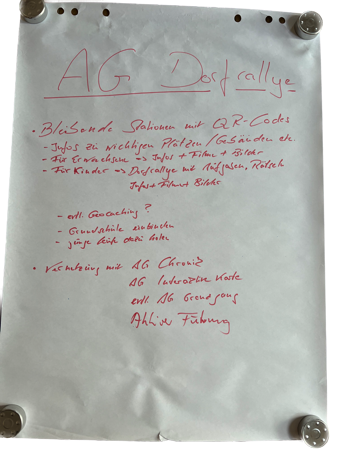 AG Dorfrallye
• Bleibende Stationen mit QR-Codes
- Infos zu wichtigen Plätzen/Gebäuden etc.
- Für Erwachsene => Infos + Filme + Bilder
- Für Kinder => Dorfrallye mit Aufgaben, Rätseln
Infos + Filme + Bilder
- evtl. Geocaching?
- Grundschule einbinden
- junge Leute dazu holen
• Vernetzung mit AG Chronik
AG Interaktive Karte
evtl. AG Grenzgang
Aktiver Führung